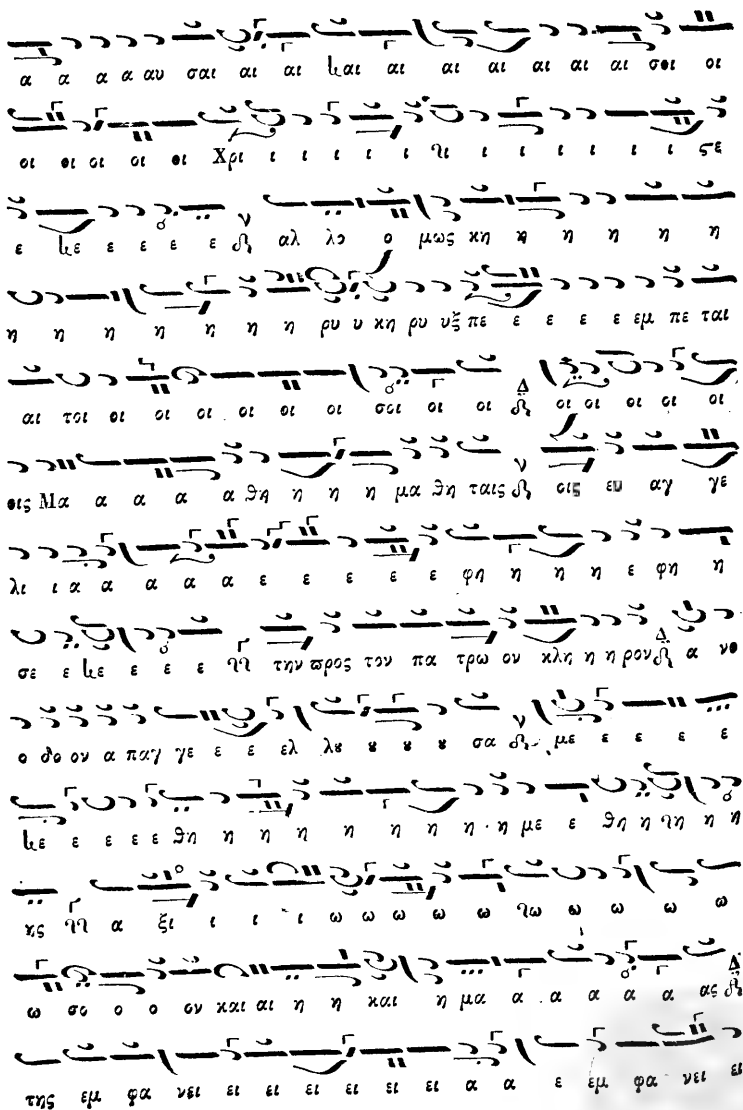 α α α α αυ σαι αι αι και αι αι αι αι αι αι σοι οι
οι οι οι οι οι Χρι ι ι ι ι ι χι ι ι ι ι ι ι ϛε
ε κε ε ε ε ε αλ λο ο μως κη η η η η η
η η η η η η η ρυ υ κη ρυ υξ πε ε ε ε ε εμ πε ται
αι τοι οι οι οι οι οι οι σοι οι οι οι οι οι οι οι
οις Μα α α α α θη η η η μα θη ταις οις ευ αγ γε
λι ι α α α α α ε ε ε ε ε φη η η η ε φη η
σε ε κε ε ε ε την προς τον πα τρω ον κλη η η ρον α νο
ο δο ον α παγ γε ε ε ελ λȣ ȣ ȣ ȣ σα με ε ε ε ε
κε ε ε ε ε θη η η η η η η η η με ε θη η χη η η
ης α ξι ι ι ι ω ω ω ω ω χω ω ω ω ω
ω σο ο ο ον και αι η η και η μα α α α α α ας
της εμ φα νει ει ει ει ει ει ει α α ε εμ φα νει ει